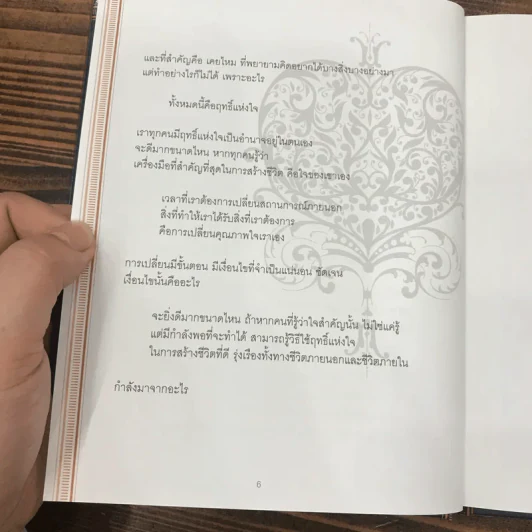 และที่สำคัญคือ เคยไหม ที่พยายามคิดอยากได้บางสิ่งบางอย่างมา
แต่ทำอย่างไรก็ไม่ได้ เพราะอะไร
ทั้งหมดนี้คือฤทธิ์แห่งใจ
เราทุกคนมีฤทธิ์แห่งใจเป็นอำนาจอยู่ในตนเอง
จะดีมากขนาดไหน หากทุกคนรู้ว่า
เครื่องมือที่สำคัญที่สุดในการสร้างชีวิต คือใจของเขาเอง
เวลาที่เราต้องการเปลี่ยนสถานการณ์ภายนอก
สิ่งที่ทำให้เราได้รับสิ่งที่เราต้องการ
คือการเปลี่ยนคุณภาพใจเราเอง
การเปลี่ยนมีขั้นตอน มีเงื่อนไขที่จำเป็นแน่นอน ชัดเจน
เงื่อนไขนั้นคืออะไร
จะยิ่งดีมากขนาดไหน ถ้าหากคนที่รู้ว่าใจสำคัญนั้น ไม่ใช่แค่รู้
แต่มีกำลังพอที่จะทำได้ สามารถรู้วิธีใช้ฤทธิ์แห่งใจ
ในการสร้างชีวิตที่ดี รุ่งเรืองทั้งทางชีวิตภายนอกและชีวิตภายใน
กำลังมาจากอะไร
6